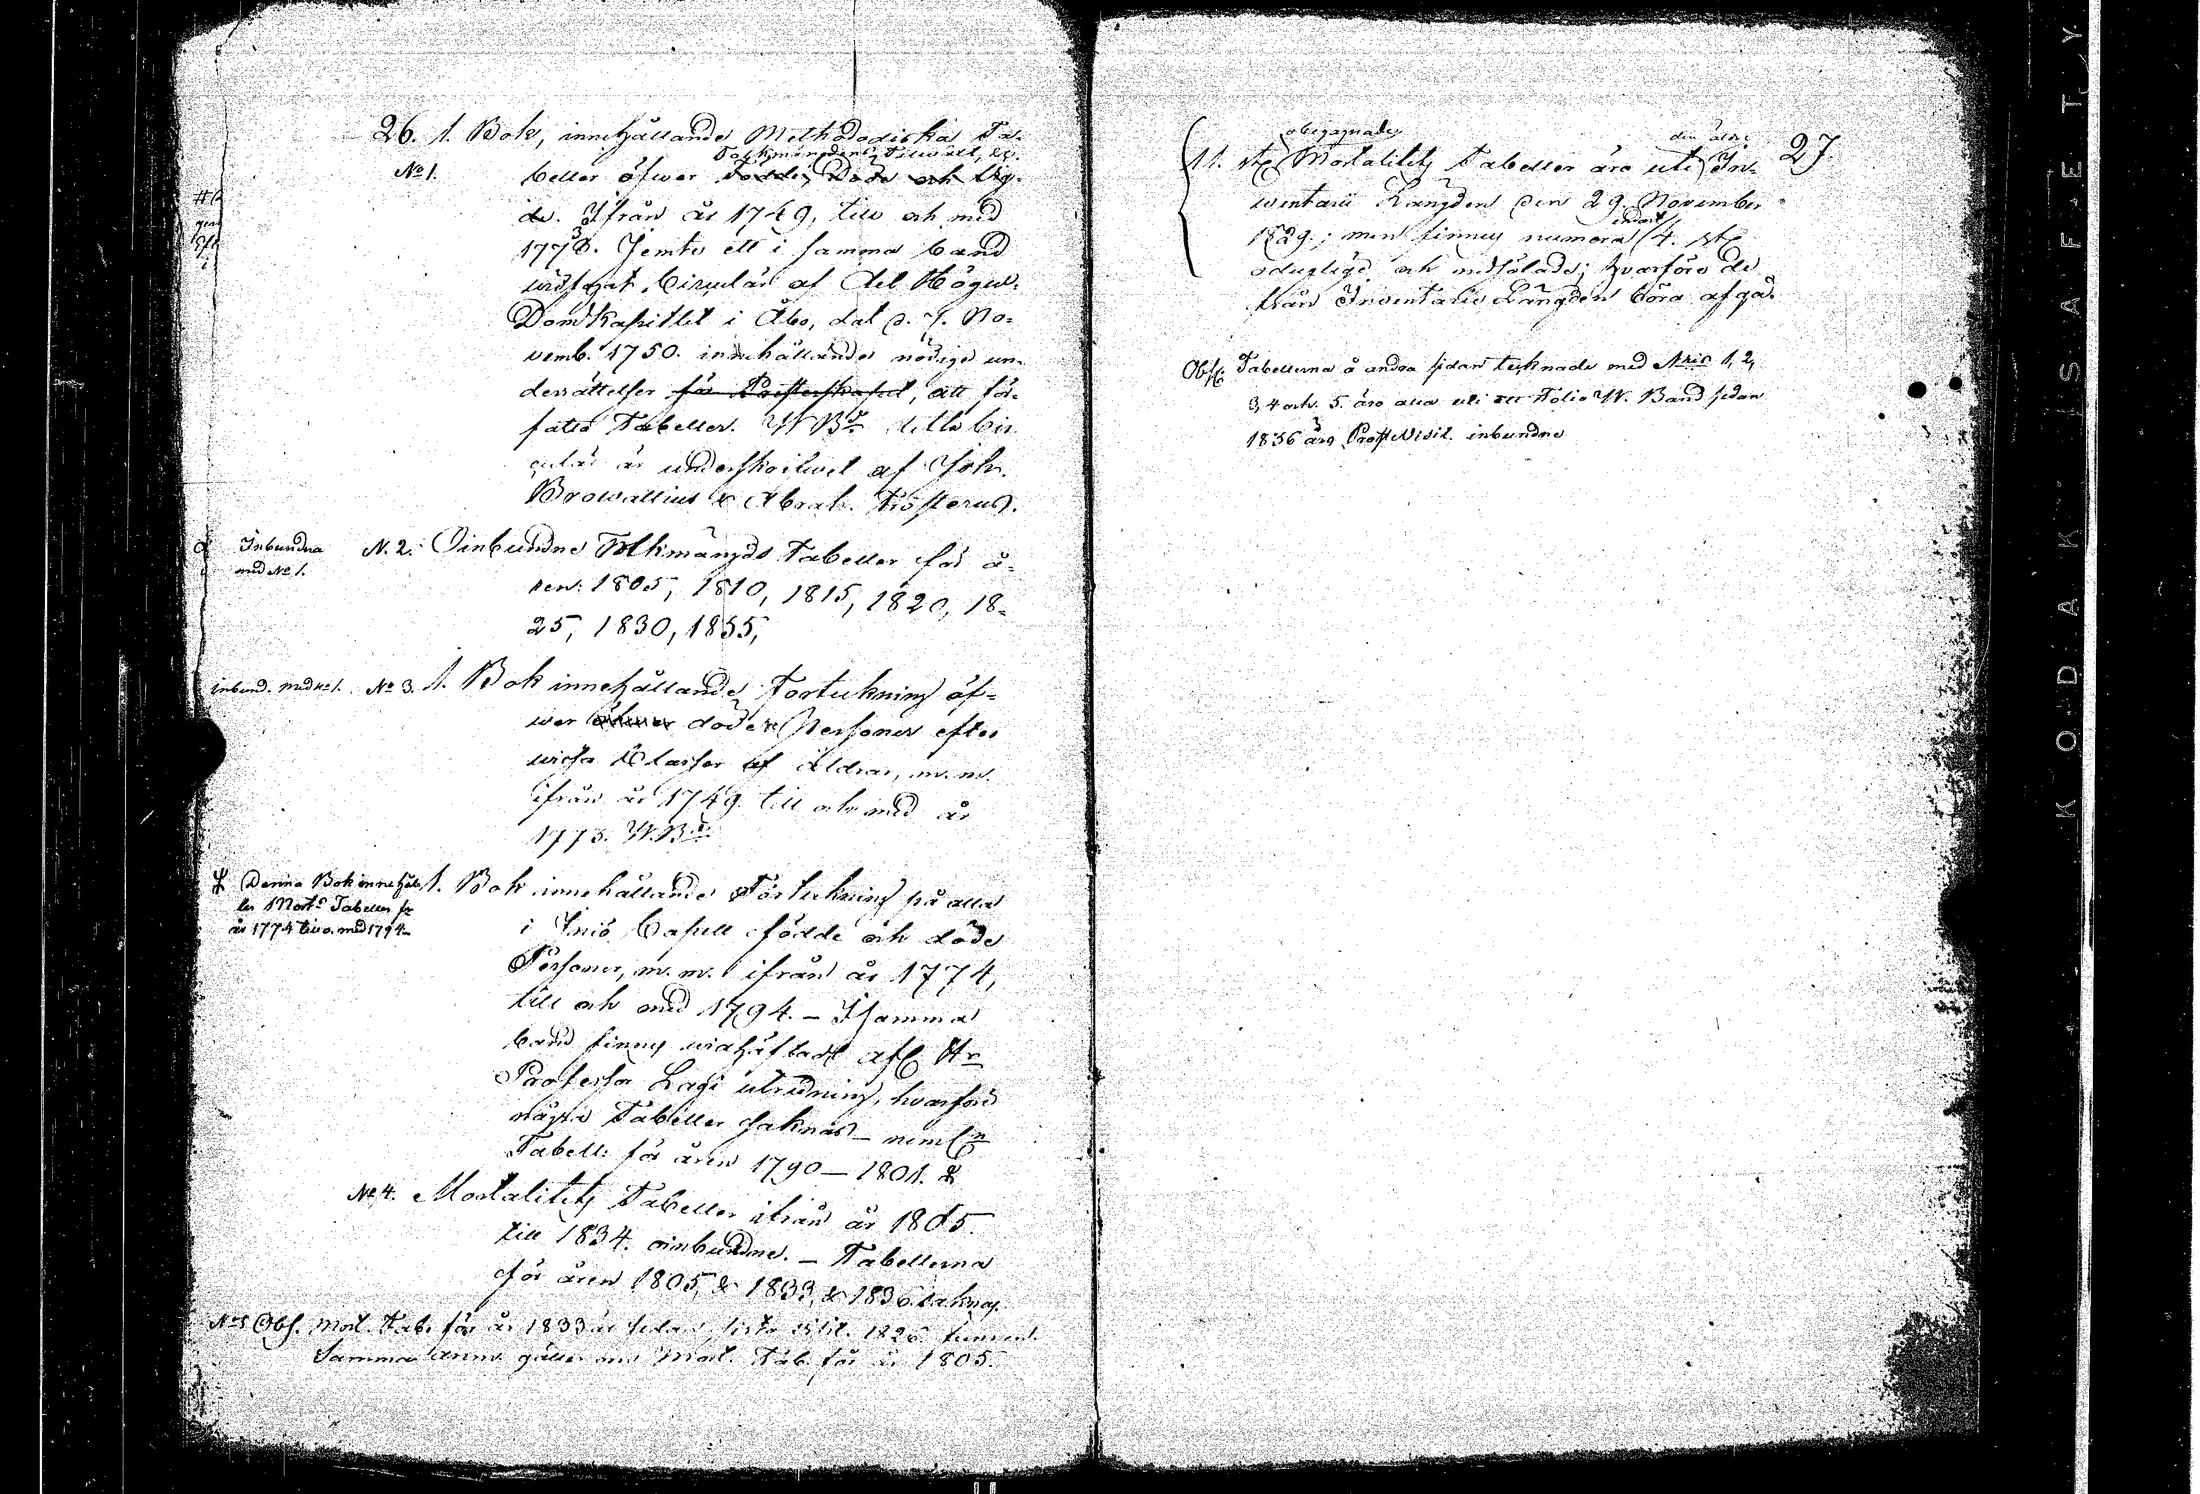 26. 1. Bok, innehållande Methododiska Ta-
Folkmängdens Tillwäxt, &c.
No 1. beller öfwer födde, Döde och Wig-
de. Ifrån år 1749, till och med
1773. Jemte ett i samma band
widfogat Circulär af Det Högw.
Domkapitlet i Åbo, dat. d. 7. No-
vemb. 1750. innehållande nödige un-
derrättelser för Presterskapet, att för-
fatta Tabeller. detta Cir-
culär är underskrifvet af Joh.
Browallius & Abrah. Frosterus.
Inbundna
med No 1.
N. 2. Oinbundne Folkmängds Tabeller för å-
ren: 1805, 1810, 1815, 1820, 18-
25, 1830, 1835,
inbund. med No 1. No 3. 1. Bok innehållande Förtekning öf-
wer döde Personer efter
wissa Classer af Åldrar, m.m.
ifrån år 1749 till och med år
1773.
Denna Bok innehål-
ler Mort. Tabeller fr.
år 1774 till o. med 1794.
1. Bok innehållande Förtekning på alla
i Iniö Capell födde och döde
Personer, m.m. ifrån år 1774,
till och med 1794. – I samma
band finnes widhäftadt Hr
Professor Lagi utredning, hvarföre
några Tabeller saknas – neml.
Tabell: för åren 1790 – 1801. &
No 4. Mortalitets Tabeller ifrån år 1805
till 1834. oinbundne. – Tabellerna
för åren 1805, & 1833, & 1836 saknas.
No 5 Obs. Mort. Tab. för år 1833 är sedan sista visit. 1826
Samma anm. gäller om Mort. Tab. för år 1805.
27.
obegagnade
den äldre
11. st. Mortalitets Tabeller äro uti In-
wentarii Längden den 29. November
endast
1829.; men finnes numera 4. st.
odugliga och nedsölade; hvarföre de
från Inventarii Längden böra afgå.
Obs. Tabellerna å andra sidan teknade med Nris 1, 2,
3, 4 och 5. äro alla uti ett Folio Band sedan
1836 års Prosts Visit. inbundne
KODAK SAFETY